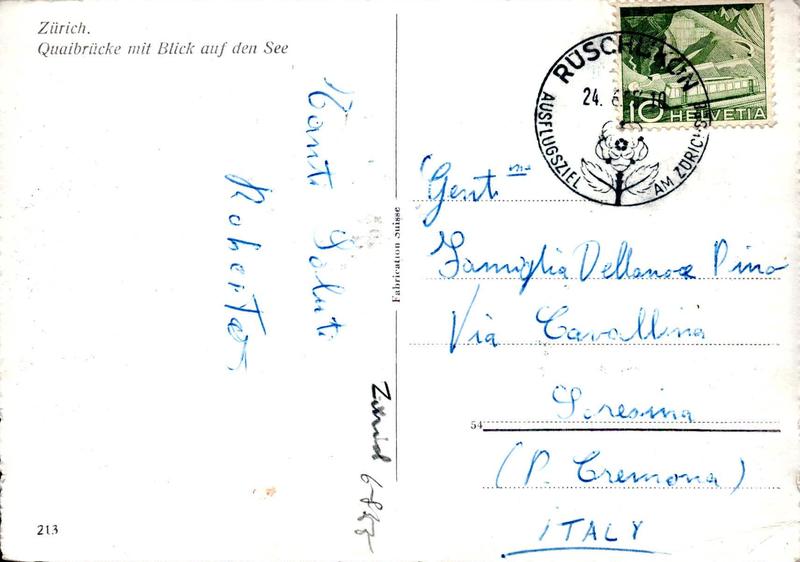 Zürich.
Quaibrücke mit Blick auf den See
Saluti
Roberto
Fabrication Suisse
213
RÜSCHLIKON
24.
AUSFLUGSZIEL
AM ZÜRICHSEE
10 HELVETIA
Gent.me
Famiglia Dellanoce Pino
Via Cavallina
54
Soresina
(P. Cremona)
ITALY